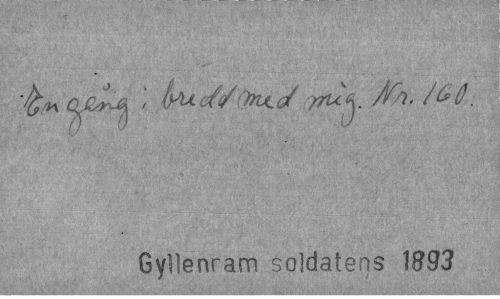 En gång i bredd med mig. Nr. 160.
Gyllenram soldatens 1893